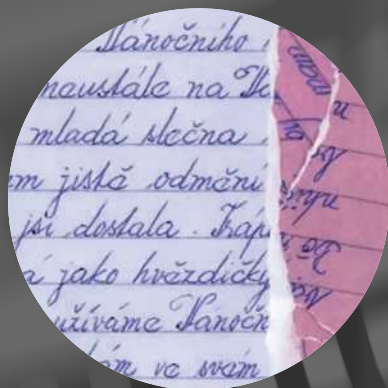 Vánočního
neustále na Va
mladá slečna
m jistě odmění
jsi dostala. Tráp
á jako hvězdičky
užíváme Vánočn
ám ve svém